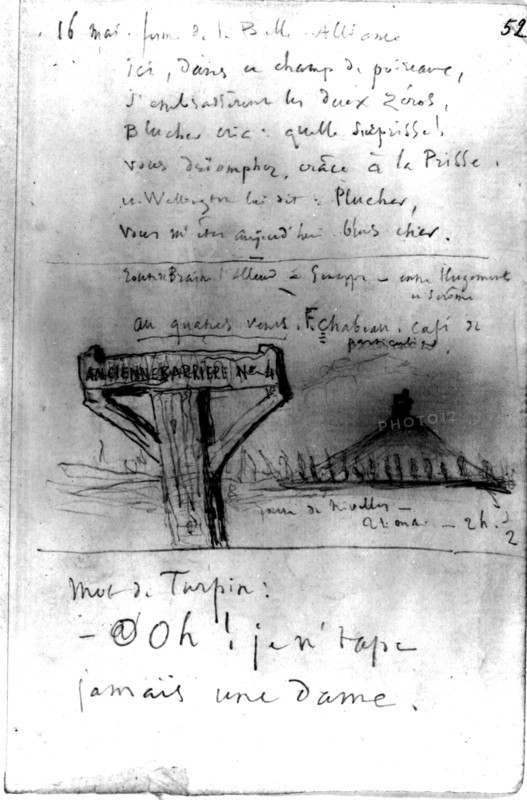 16 mai. ferme de la Belle-Alliance
52
Ici, dans un champ de poireaux,
S'embrassèrent les deux zéros,
Blucher cria : quelle surprisse!
Vous dériomphez, crâce à la Prisse.
et Wellington lui dit : Plucher,
Vous m'êtes aujourd'hui blus cher.
Braine l'Alleud à Genappe - entre Hougomont
au quatre vents. F. Chabeau. Café de
particulier
ANCIENNE BARRIÈRE No 4
PHOTO12
de Nivelles -
21 mai - 2h. 1/2
Mot de Turpin :
- Oh ! je n'tape
jamais une dame.